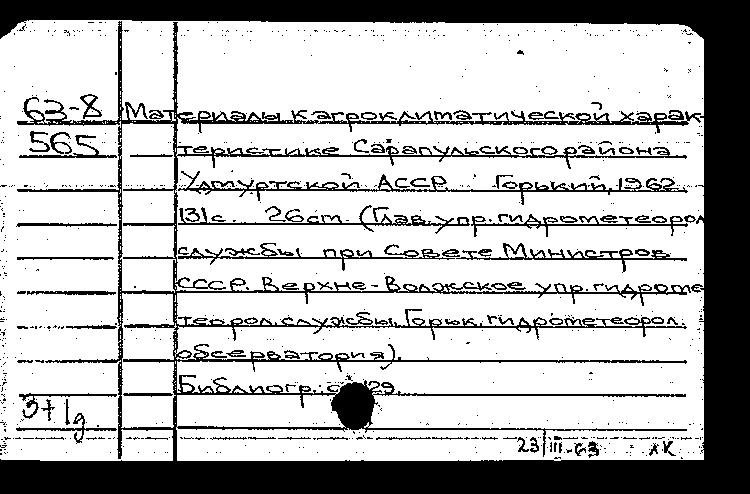 63-8 Материалы к агроклиматической харак-
565 теристике Сарапульского района
Удмуртской АССР. Горький, 1962.
131с. 26cm. (Глав. упр. гидрометеорол
службы при Совете Министров
СССР. Верхне-Волжское упр. гидроме
теорол. службы. Горьк. гидрометеорол.
обсерватория).
Библиогр.: 129.
3+1д
23/III-63 ЛК